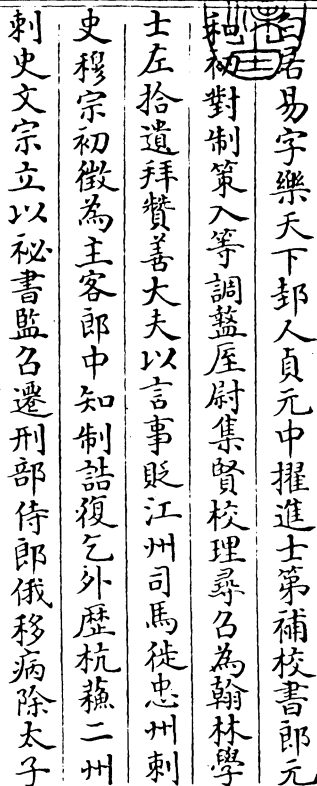 白居易字樂天下邽人貞元中擢進士第補校書郎元
和初對制策入等調盩厔尉集賢校理尋召為翰林學
士左拾遺拜贊善大夫以言事貶江州司馬徙忠州刺
史穆宗初徵為主客郎中知制誥復乞外歷杭蘓二州
刺史文宗立以祕書監召遷刑部侍郎俄移病除太子